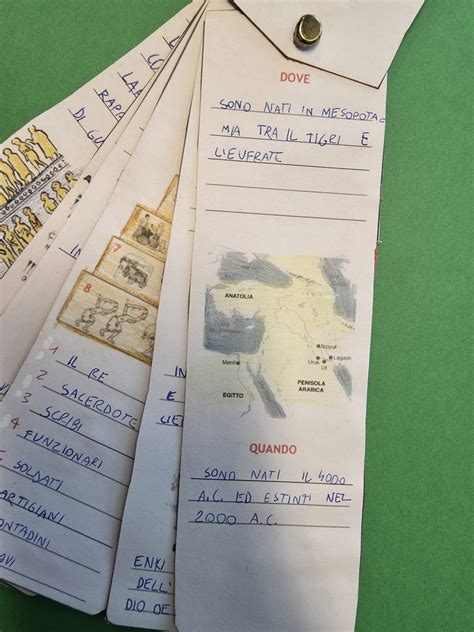 DOVE
SONO NATI IN MESOPOTA=
MIA TRA IL TIGRI E
L'EUFRATE
ANATOLIA
Nippur
Lagash
Uruk
Ur
Menfi
PENISOLA
ARABICA
EGITTO
QUANDO
SONO NATI IL 4000
A.C. ED ESTINTI NEL
2000 A.C.
DI
7
8
1 IL RE
2 SACERDOTE
3 SCRIBI
4 FUNZIONARI
SOLDATI
ARTIGIANI
CONTADINI
E
ENKI
DELL'
DIO DE